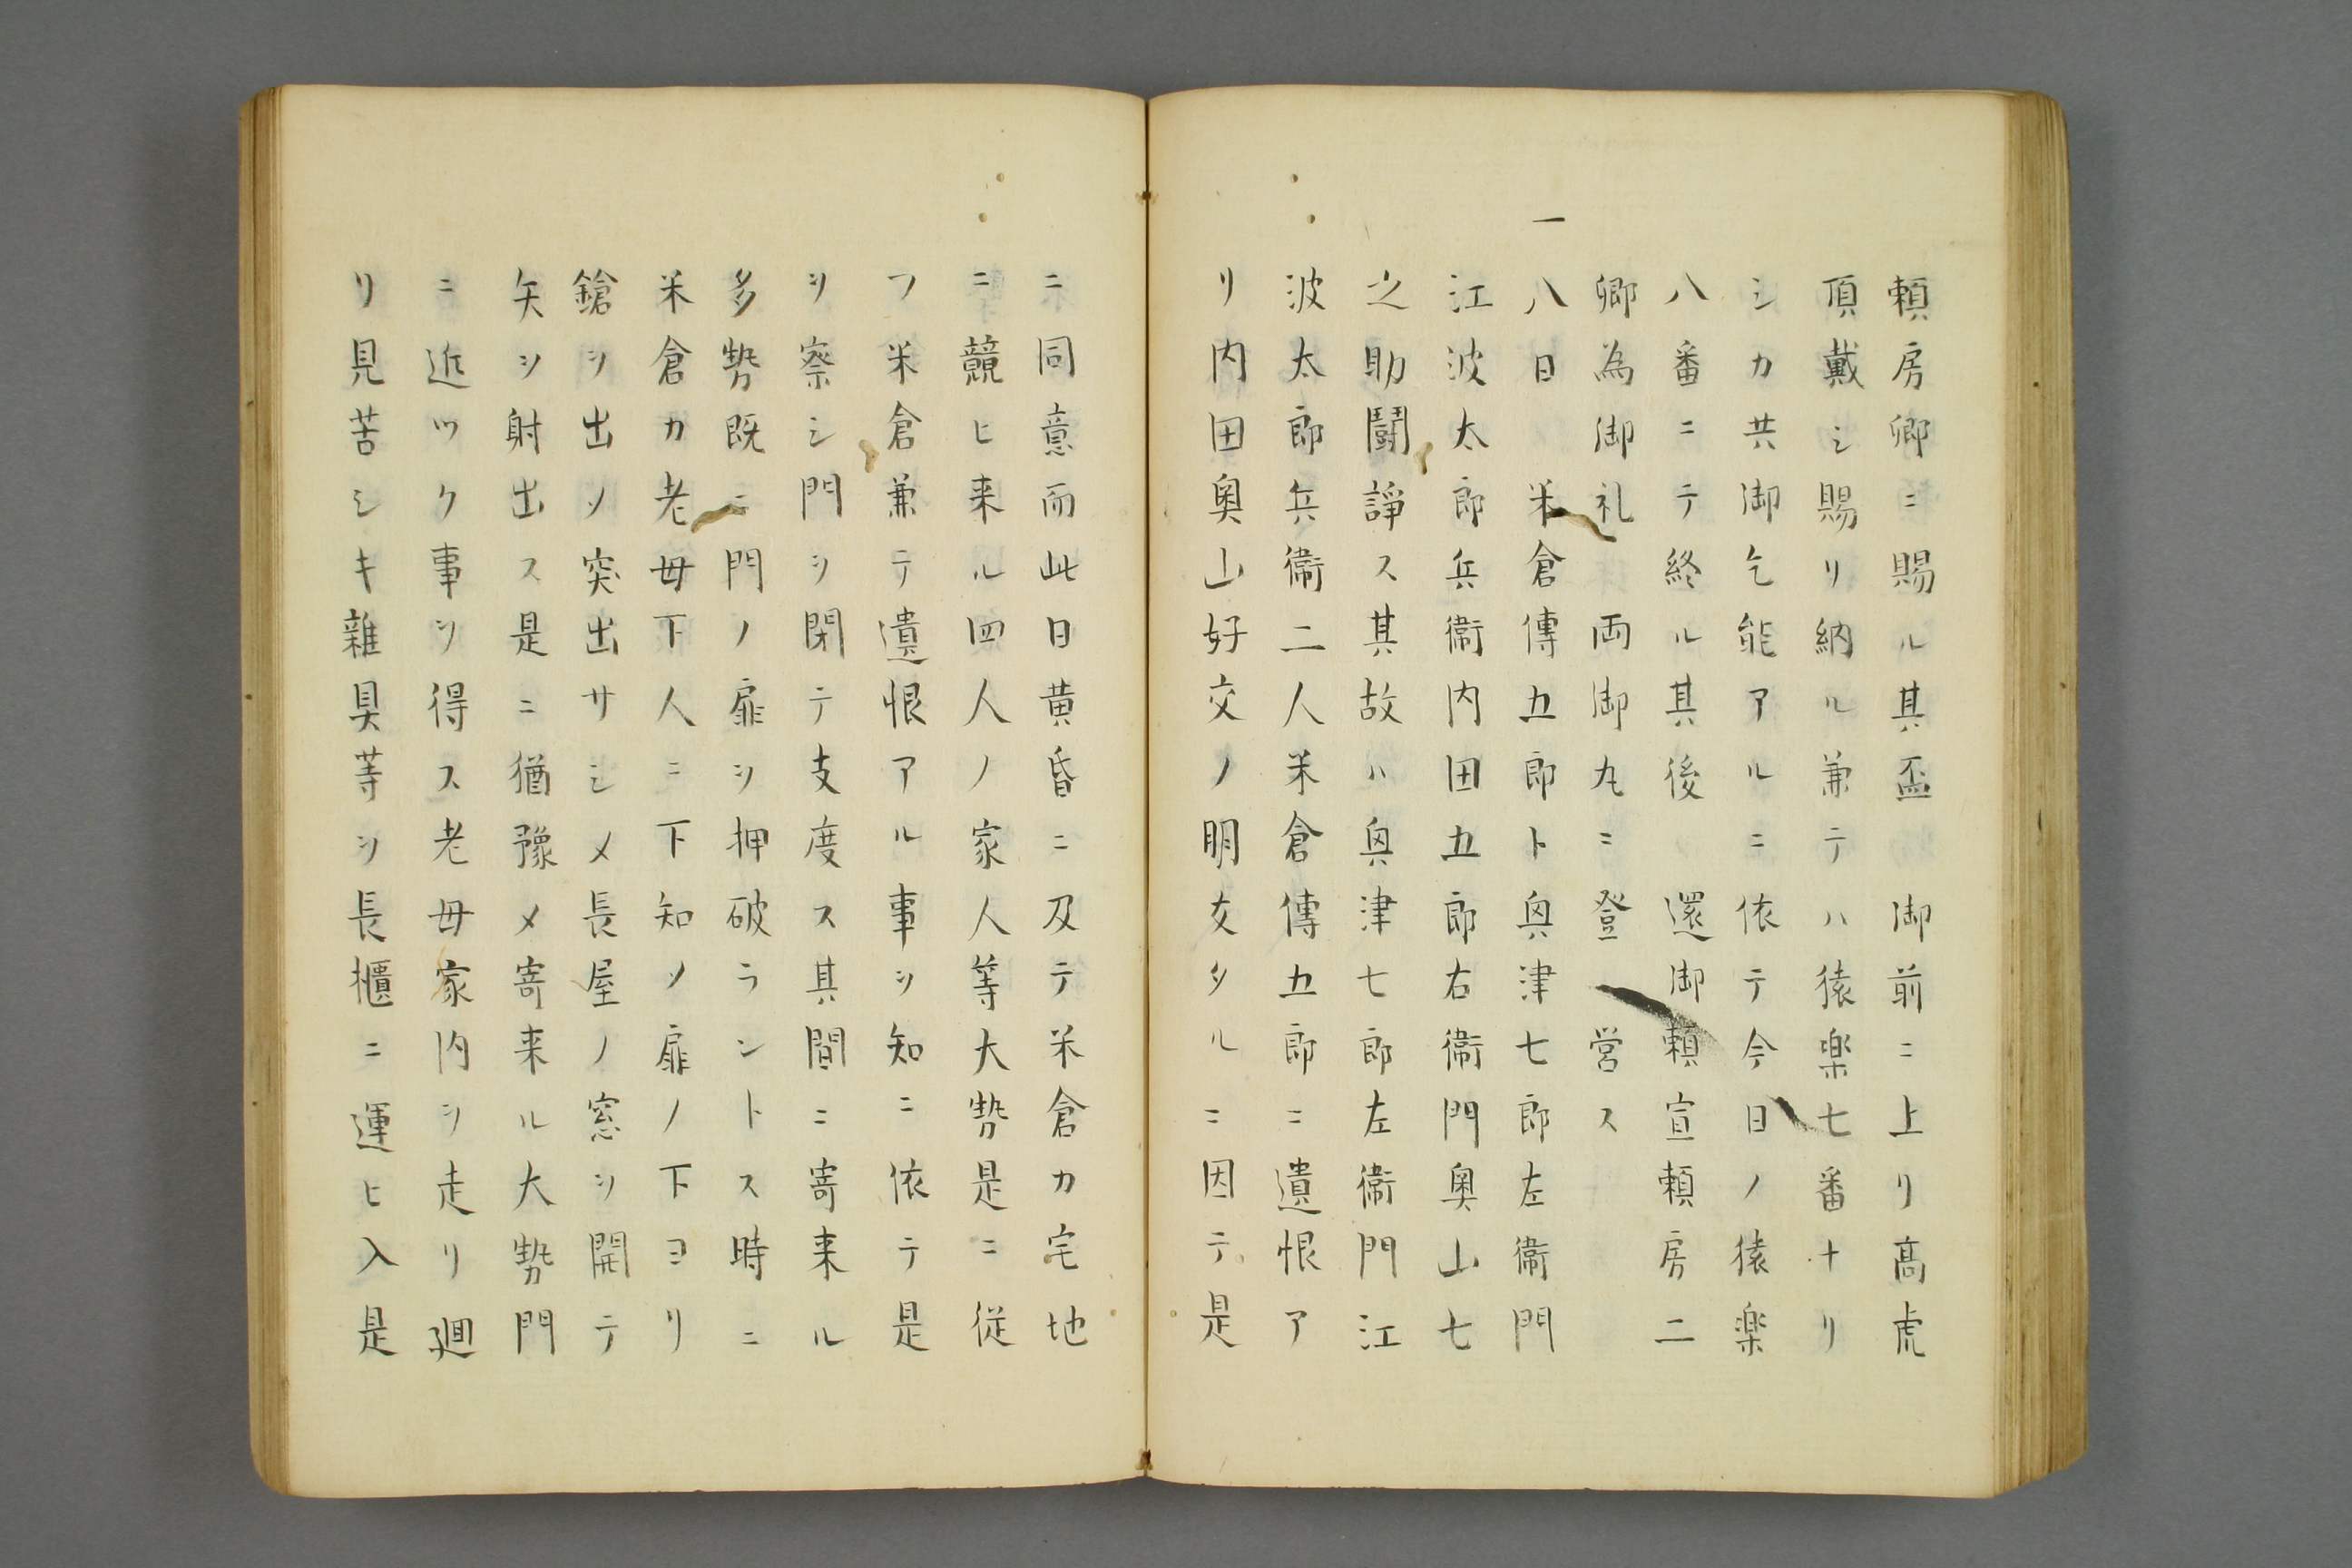 頼房卿ニ賜ル其盃　御前ニ上リ髙虎
頂戴シ賜リ納ル兼テハ猿楽七番ナリ
シカ共御乞能アルニ依テ今日ノ猿楽
八番ニテ終ル其後　還御頼宣頼房二
卿為御礼　両御丸ニ登　営ス
一八日　米倉傳五郎ト奥津七郎左衛門
江波太郎兵衛内田五郎右衛門奥山七
之助闘諍ス其故ハ奥津七郎左衛門江
波太郎兵衛二人米倉傳五郎ニ遺恨ア
リ内田奥山好交ノ朋友タルニ因テ是
ニ同意而此日黄昏ニ及テ米倉カ宅地
ニ競ヒ来ル四人ノ家人等大勢是ニ従
フ米倉兼テ遺恨アル事ヲ知ニ依テ是
ヲ察シ門ヲ閉テ支度ス其間ニ寄来ル
多勢既ニ門ノ扉ヲ押破ラントス時ニ
米倉カ老母下人ニ下知ソ扉ノ下ヨリ
鎗ヲ出ソ突出サシメ長屋ノ窓ヲ開テ
矢ヲ射出ス是ニ猶豫メ寄来ル大勢門
ニ近ツク事ヲ得ス老母家内ヲ走リ廻
リ見苦シキ雜具等ヲ長櫃ニ運ヒ入是